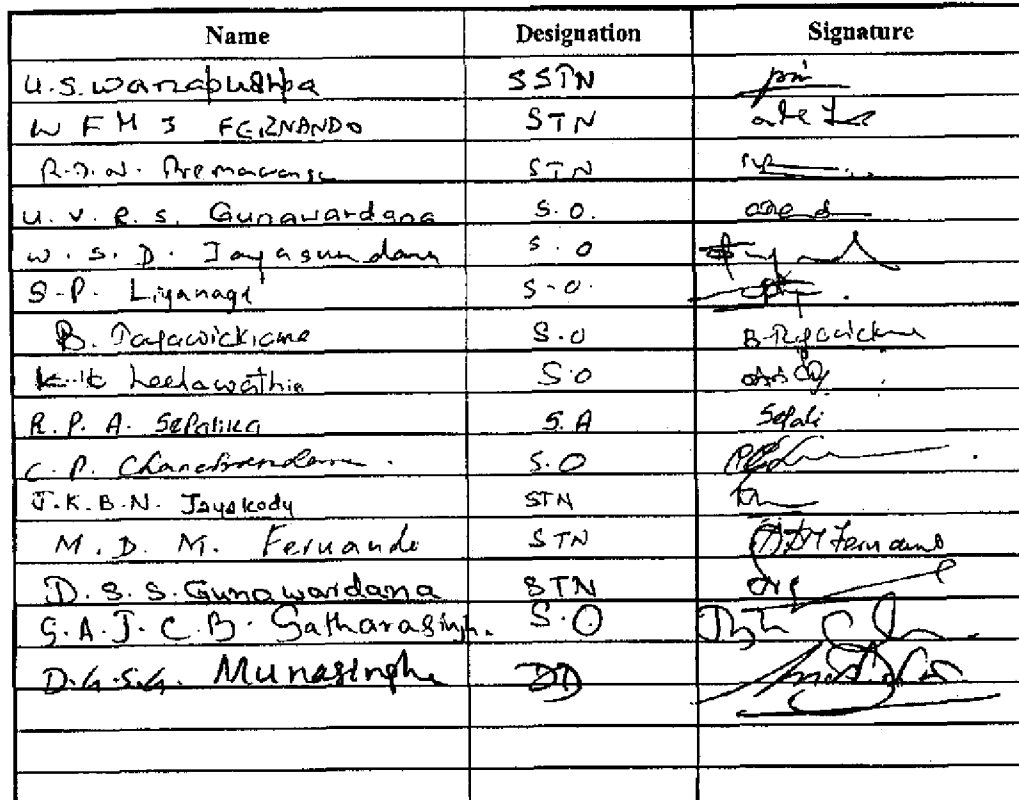 Name Designation Signature
U.S. Wanapushpa SSTN
W F M J FERNANDO STN
R.D.N. Premawansa STN
U.V.R.S. Gunawardana S.O.
W.S.D. Jayasundara S.O
S.P. Liyanage S.O.
B. Jayawickrama S.O B.Jayawickrama
K.K Leelawathie S.O
R.P.A. Sepalika S.A Sepali
C.P. S.O
J.K.B.N. Jayakody STN
M.D.M. Fernando STN MDM Fernando
D.S.S. Gunawardana STN
G.A.J.C.B. Gatharasingh. S.O
D.G.S.G. Munasinghe DD